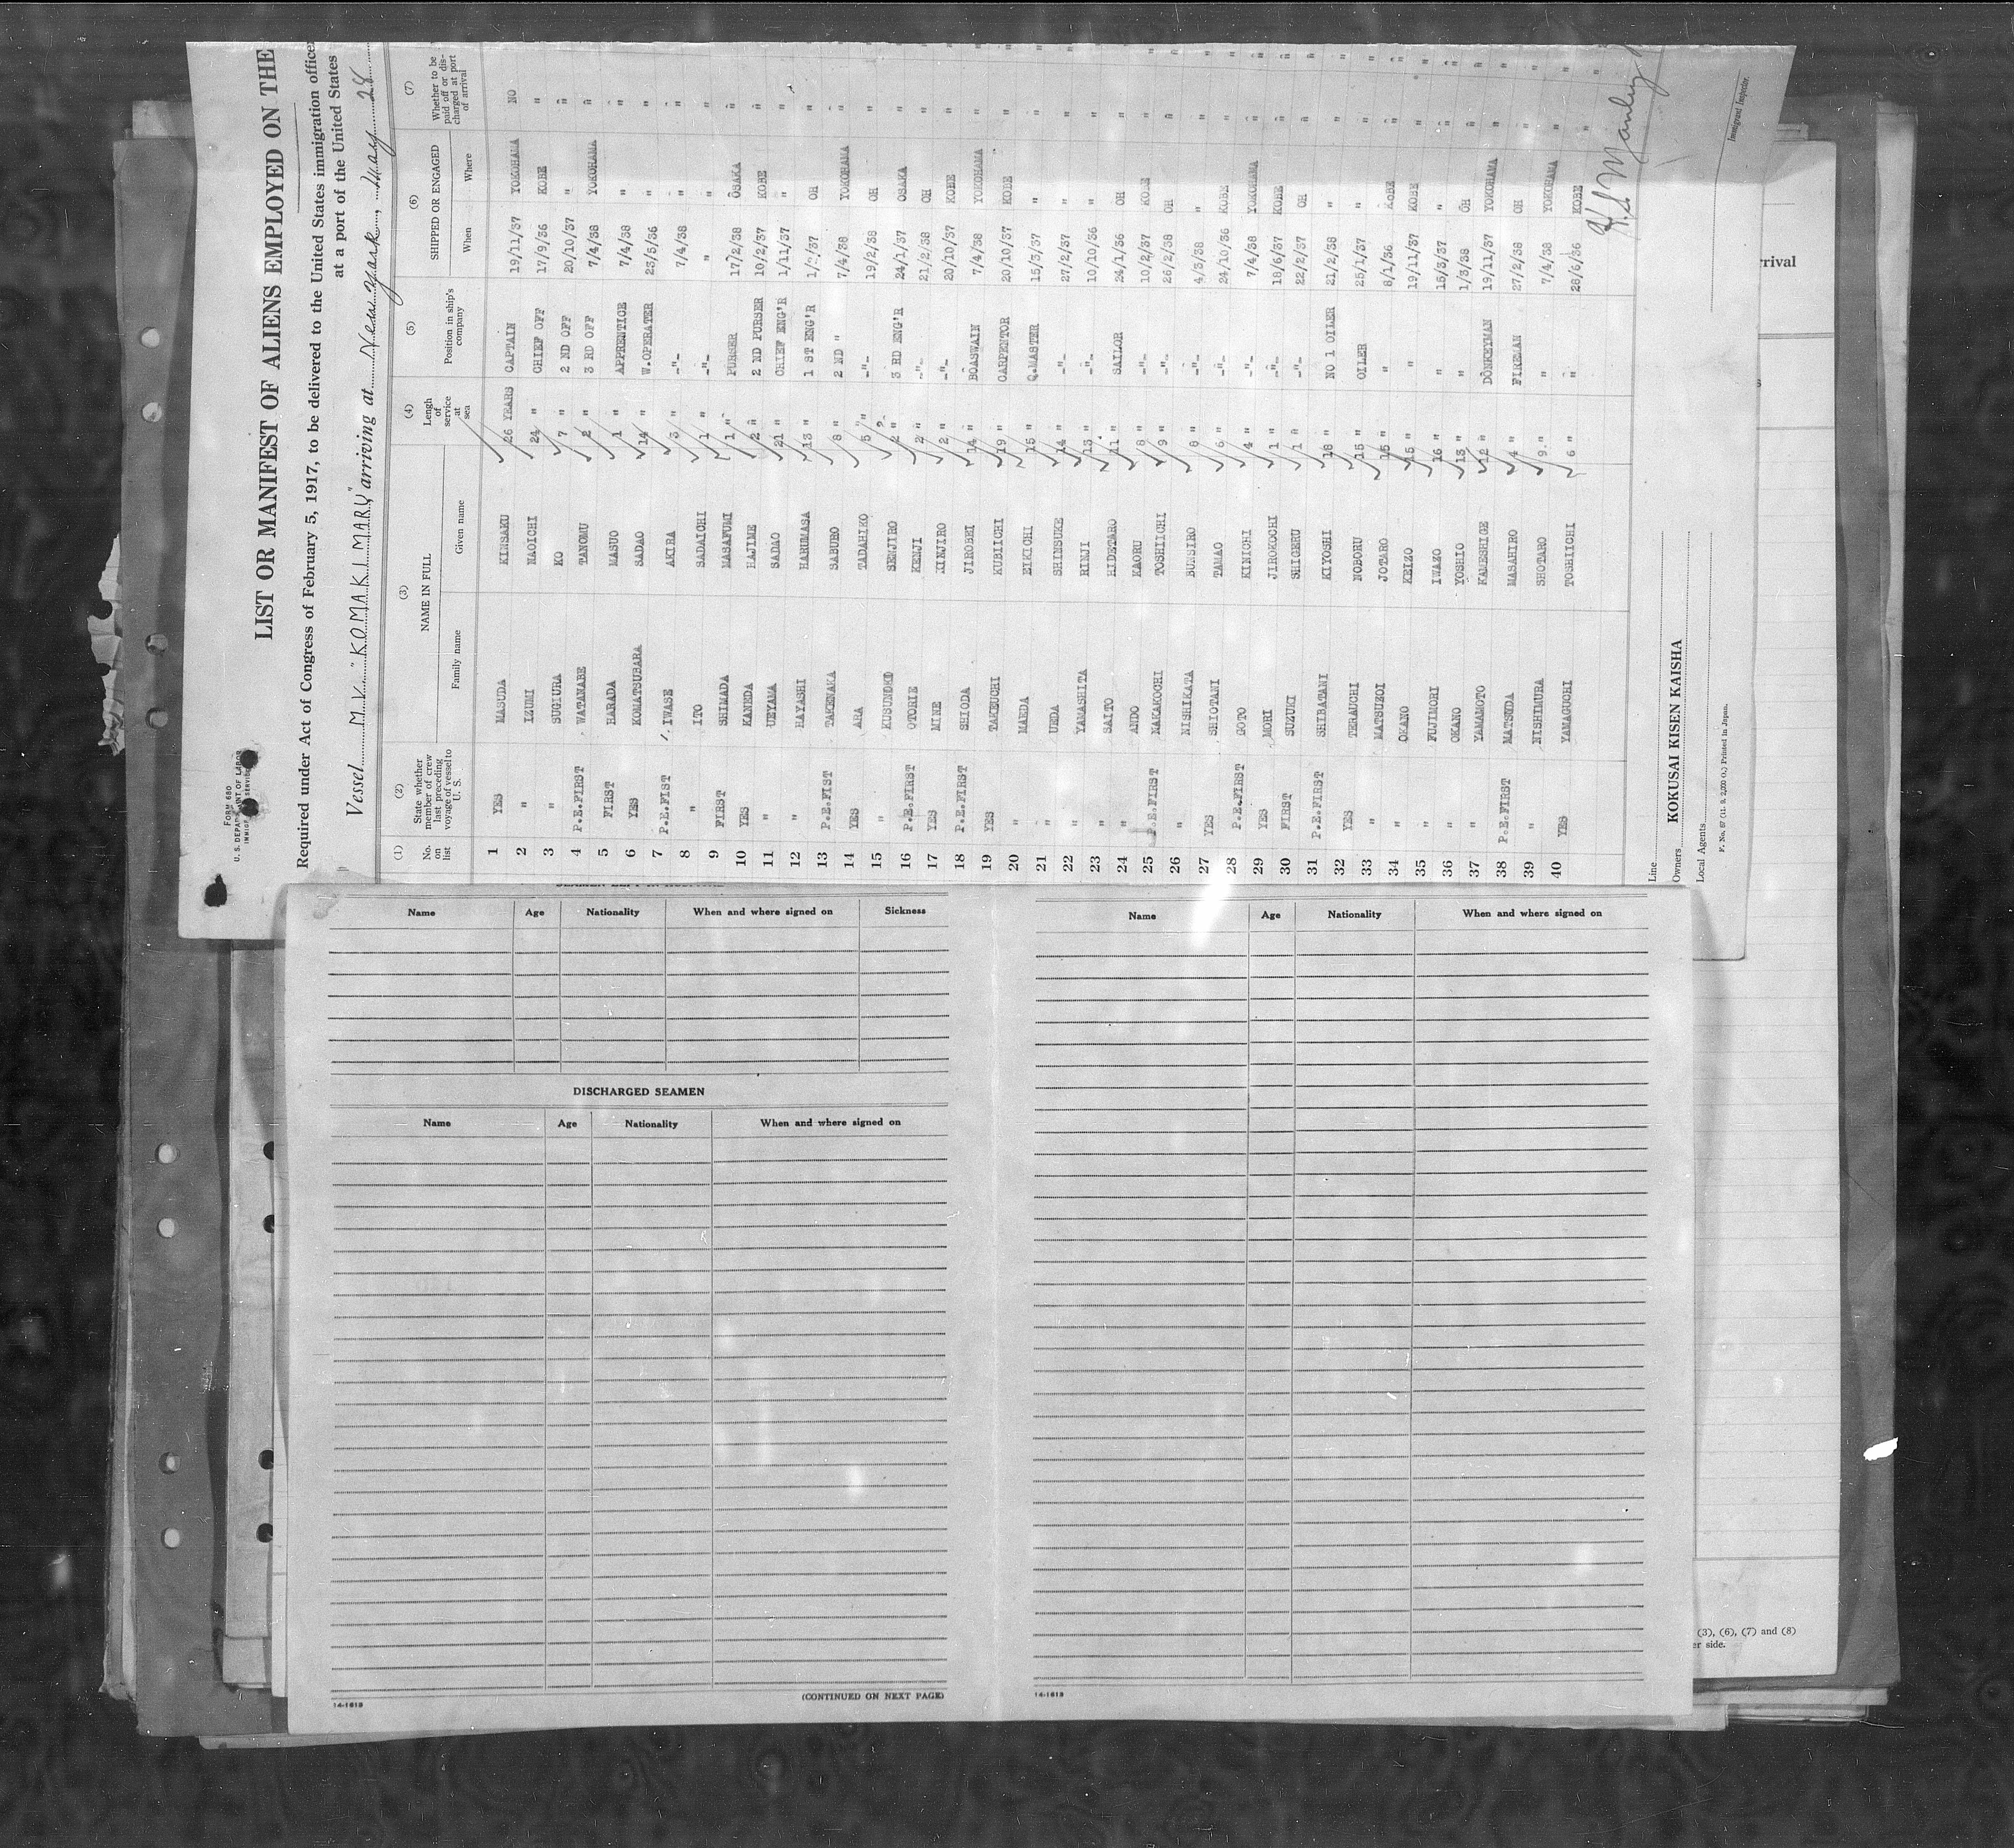 FORM 680
U. S. DEPARTMENT OF LABOR
IMMIGRATION SERVICE
LIST OR MANIFEST OF ALIENS EMPLOYED ON THE
Required under Act of Congress of February 5, 1917, to be delivered to the United States immigration officer
at a port of the United States
Vessel M.V. "KOMAKI MARU" arriving at New York, May 28
(1) (2) (3) (4) (5) (6) (7)
No. on list State whether member of crew last preceding voyage of vessel to U. S. NAME IN FULL Family name Given name Lengh of service at sea Position in ship's company SHIPPED OR ENGAGED When Where Whether to be paid off or discharged at port of arrival
1 YES MASUDA KINSAKU 26 YEARS CAPTAIN 19/11/37 YOKOHAMA NO
2 " IZUMI NAOICHI 24 " CHIEF OFF 17/9/36 KOBE "
3 " SUGIURA KO 7 " 2 ND OFF 20/10/37 " "
4 P.E.FIRST WATANABE TANOMU 2 " 3 RD OFF 7/4/38 YOKOHAMA "
5 FIRST HARADA MASUO 1 " APPRENTICE 7/4/38 " "
6 YES KOMATSUBARA SADAO 14 " W.OPERATER 23/5/36 " "
7 P.E.FIST IWASE AKIRA 3 " -"- 7/4/38 " "
8 " ITO SADAICHI 1 " -"- " " "
9 FIRST SHIMADA MASAFUMI 1 " PURSER 17/2/38 OSAKA "
10 YES KANEDA HAJIME 2 " 2 ND PURSER 10/2/37 KOBE "
11 " UEYAMA SADAO 21 " CHIEF ENG'R 1/11/37 " "
12 " HAYASHI HARUMASA 13 " 1 ST ENG'R OH "
13 P.E.FIST TAKENAKA SABURO 8 " 2 ND " 7/4/38 YOKOHAMA "
14 YES ARA TADAHIKO 5 " -"- 19/2/38 OH "
15 " KUSUNOKI SENJIRO 2 " 3 RD ENG'R 24/1/37 OSAKA "
16 P.E.FIRST OTORIE KENJI 2 " -"- 21/2/38 OH "
17 YES MINE KINJIRO 2 " -"- 20/10/37 KOBE "
18 P.E.FIRST SHIODA JIROBEI 14 " BOASWAIN 7/4/38 YOKOHAMA "
19 YES TAKEUCHI KUBIICHI 19 " CARPENTOR 20/10/37 KOBE "
20 " MAEDA EIKICHI 15 " Q.MASTER 15/3/37 " "
21 " UEDA SHINSUKE 14 " -"- 27/2/37 " "
22 " YAMASHITA RINJI 13 " -"- 10/10/36 " "
23 " SAITO HIDETARO 11 " SAILOR 24/1/36 OH "
24 " ANDO KAORU 8 " -"- 10/2/37 KOBE "
25 P.E.FIRST NAKAKOCHI TOSHIICHI 9 " -"- 26/2/38 OH "
26 " NISHIKATA BUNSIRO 8 " -"- 4/3/38 " "
27 YES SHIOTANI TAMAO 6 " -"- 24/10/36 KOBE "
28 P.E.FIRST GOTO KINICHI 4 " -"- 7/4/38 YOKOHAMA "
29 YES MORI JIROKOCHI 1 " -"- 18/6/37 KOBE "
30 FIRST SUZUKI SHIGERU 1 " -"- 22/2/37 OH "
31 P.E.FIRST SHIBATANI KIYOSHI 18 " NO 1 OILER 21/2/38 " "
32 YES TERAUCHI NOBORU 15 " OILER 25/1/37 " "
33 " MATSUZOI JOTARO 15 " " 8/1/36 KOBE "
34 " OKANO KEIZO 15 " " 19/11/37 KOBE "
35 " FUJIMORI IWAZO 16 " " 15/3/37 " "
36 " OKANO YOSHIO 13 " " 1/3/38 OH "
37 " YAMAMOTO KAMESHIGE 12 " DONKEYMAN 19/11/37 YOKOHAMA "
38 P.E.FIRST MATSUDA MASAHIRO 4 " FIREMAN 27/2/38 OH "
39 " NISHIMURA SHOTARO 9 " " 7/4/38 YOKOHAMA "
40 YES YAMAGUCHI TOSHIICHI 6 " " 28/6/36 KOBE "
Line
Owners KOKUSAI KISEN KAISHA
Local Agents
F. No. 67 (11. 9. 2,000 O.) Printed in Japan.
Immigrant Inspector.
rrival
SEAMEN LEFT IN HOSPITAL
Name Age Nationality When and where signed on Sickness
DISCHARGED SEAMEN
Name Age Nationality When and where signed on
(CONTINUED ON NEXT PAGE)
14-1613
Name Age Nationality When and where signed on
14-1613
(3), (6), (7) and (8)
er side.